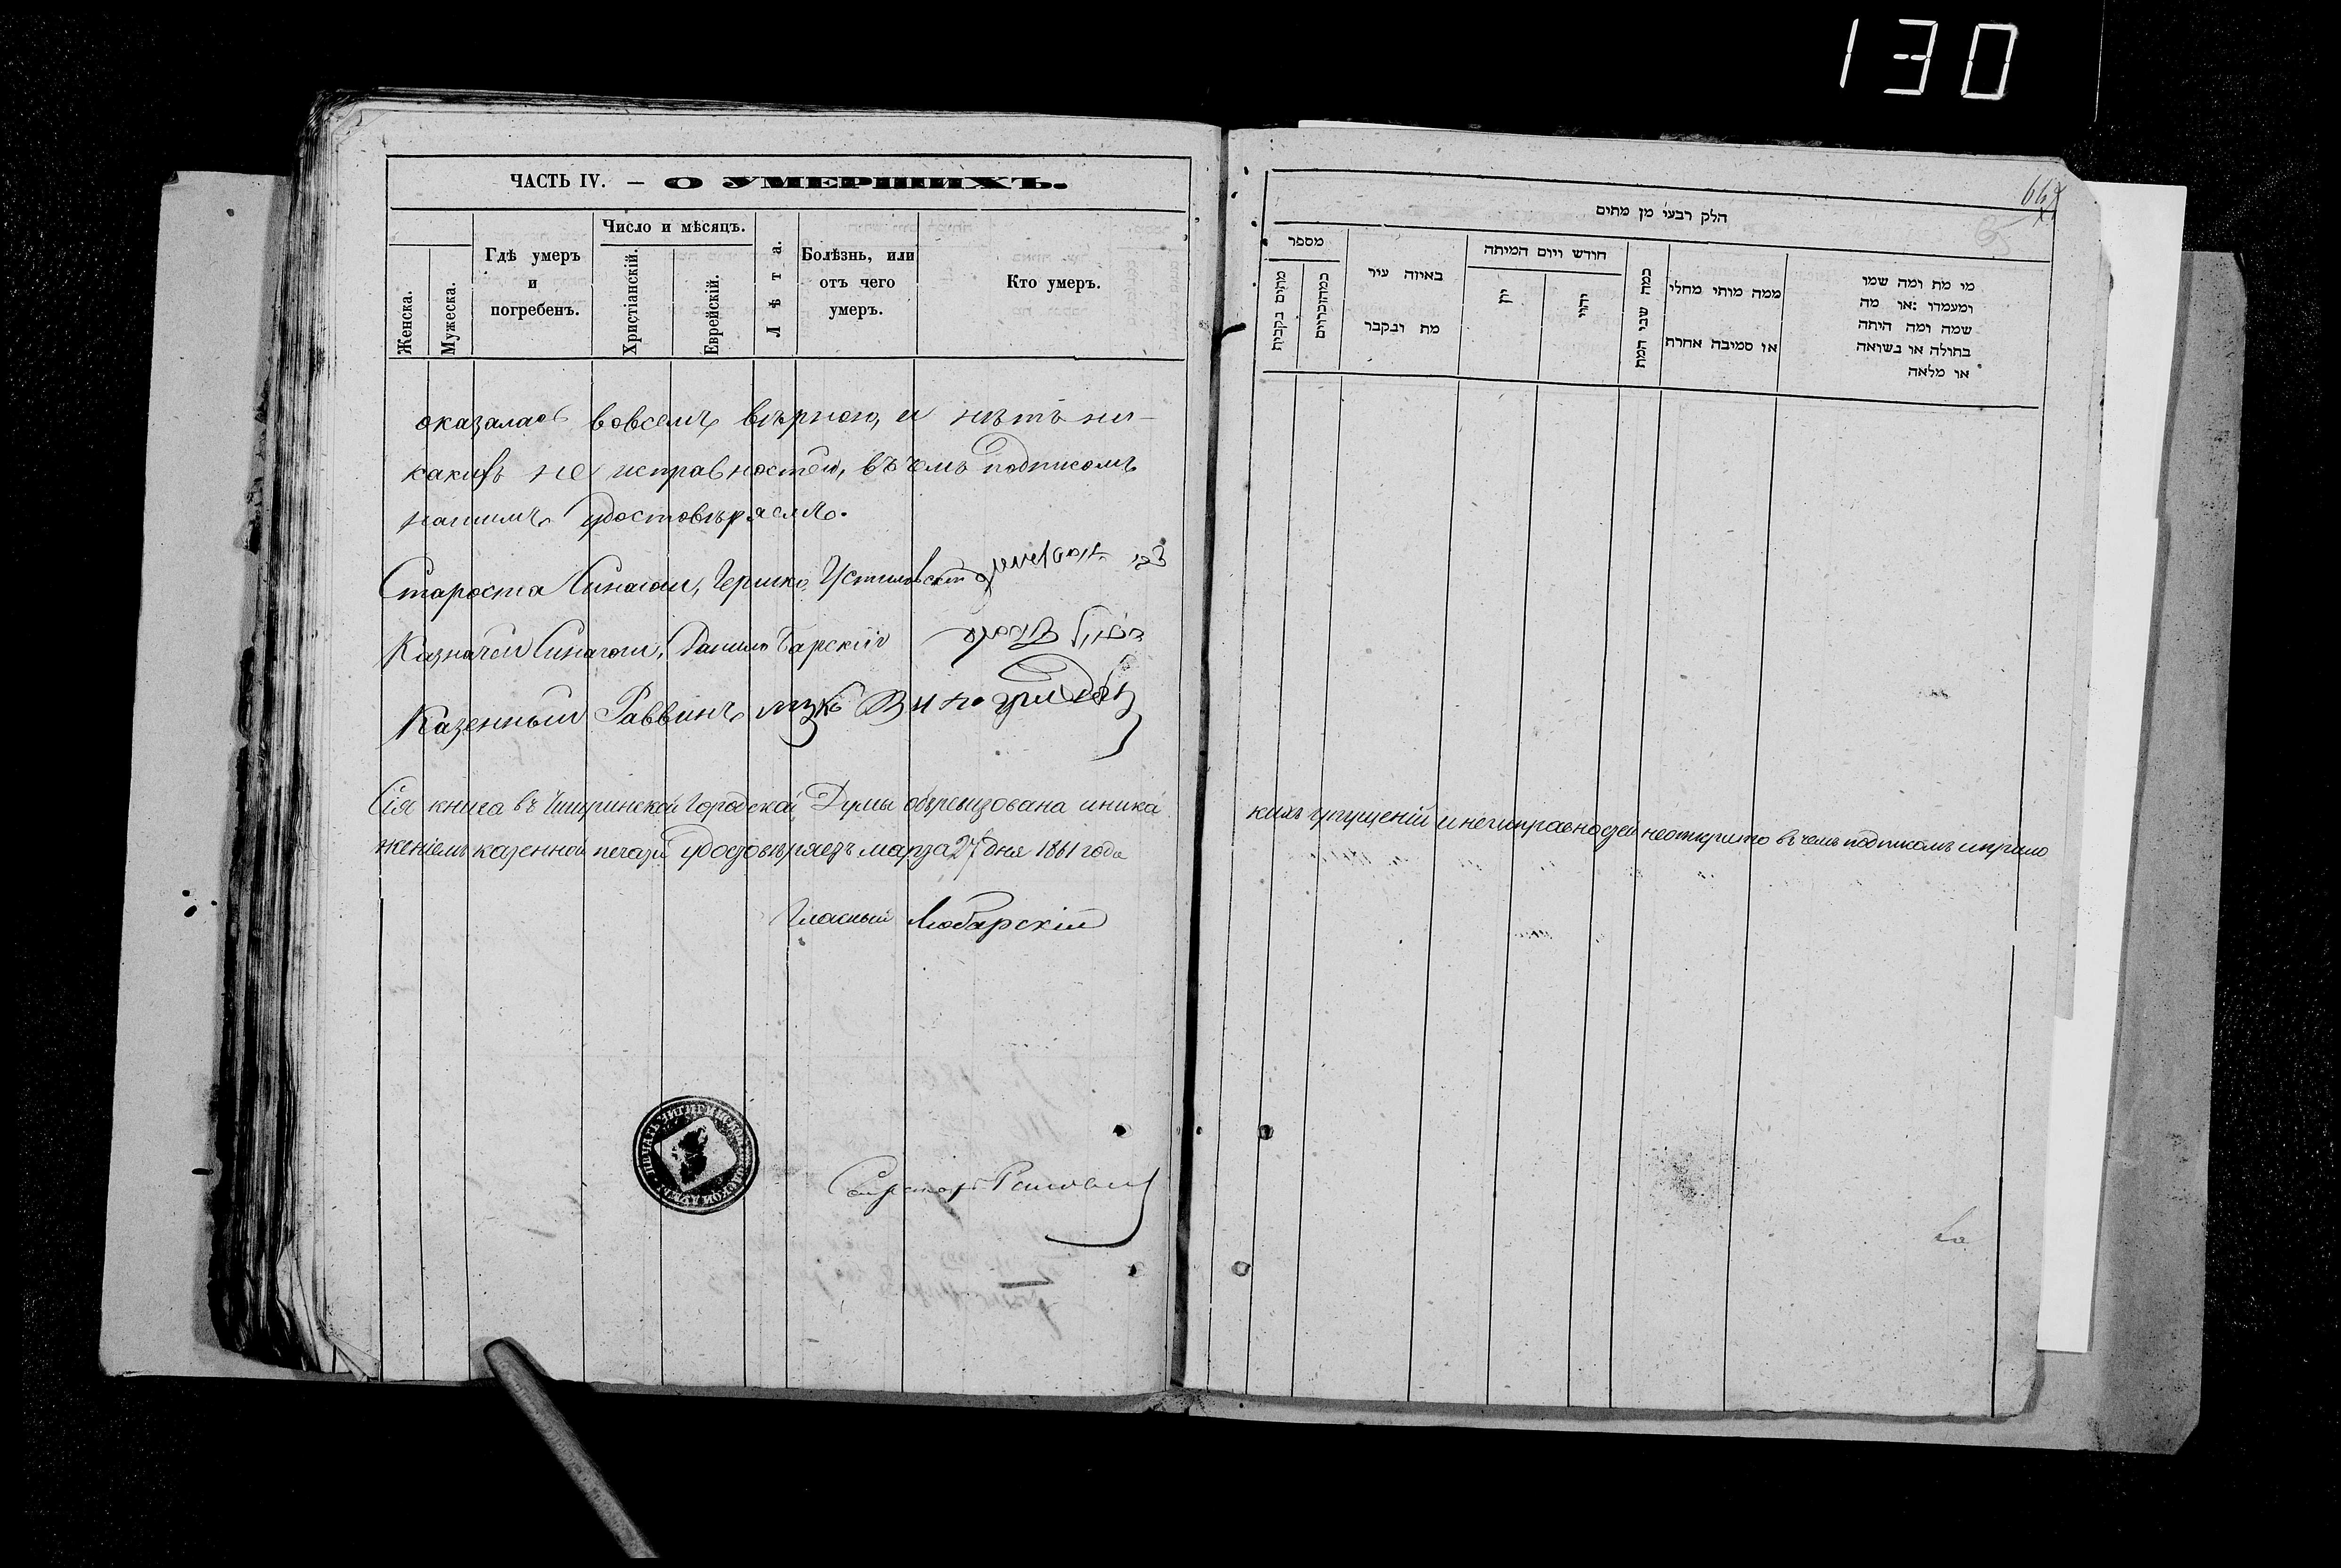 130
ЧАСТЬ IV. — О УМЕРШИХЪ.
Женска.
Мужеска.
Гдѣ умеръ
и
погребенъ.
Число и мѣсяцъ.
Христіанскій.
Еврейскій.
Лѣта.
Болѣзнь, или
отъ чего
умеръ.
Кто умеръ.
оказалась вовсемъ вѣрною, и нѣтъ ни-
какихъ не исправностей, въ чемъ подписомъ
нашимъ удостовѣряемъ.
Староста Синагоги, Гершко Устиловскій
Казначей Синагоги, Данило Барскій
Казенный Раввинъ Ицко Виноградовъ
Сія книга въ Чигиринской Городской Думы обревизована иника
кихъ упущеній инеисправностей неоткрыто въ чемъ подписомъ иприло
женіемъ казенной печати удостовѣряетъ марта 27 дня 1861 года
Гласный Любарскій
Секретарь
ПЕЧАТЬ ЧИГИРИНСКОЙ ГОРОДСКОЙ ДУМЫ
הלק רבעי מן מתים
מספר
באיזה עיר
מת ונקבר
חודש ויום המיתה
יון
יהודי
כמה שני המת
ממה מותי מחלי
או סמיבה אחרת
מי מת ומה שמו
ומעמדו :או מה
שמה ומה היתה
בתולה או נשואה
או מלאה